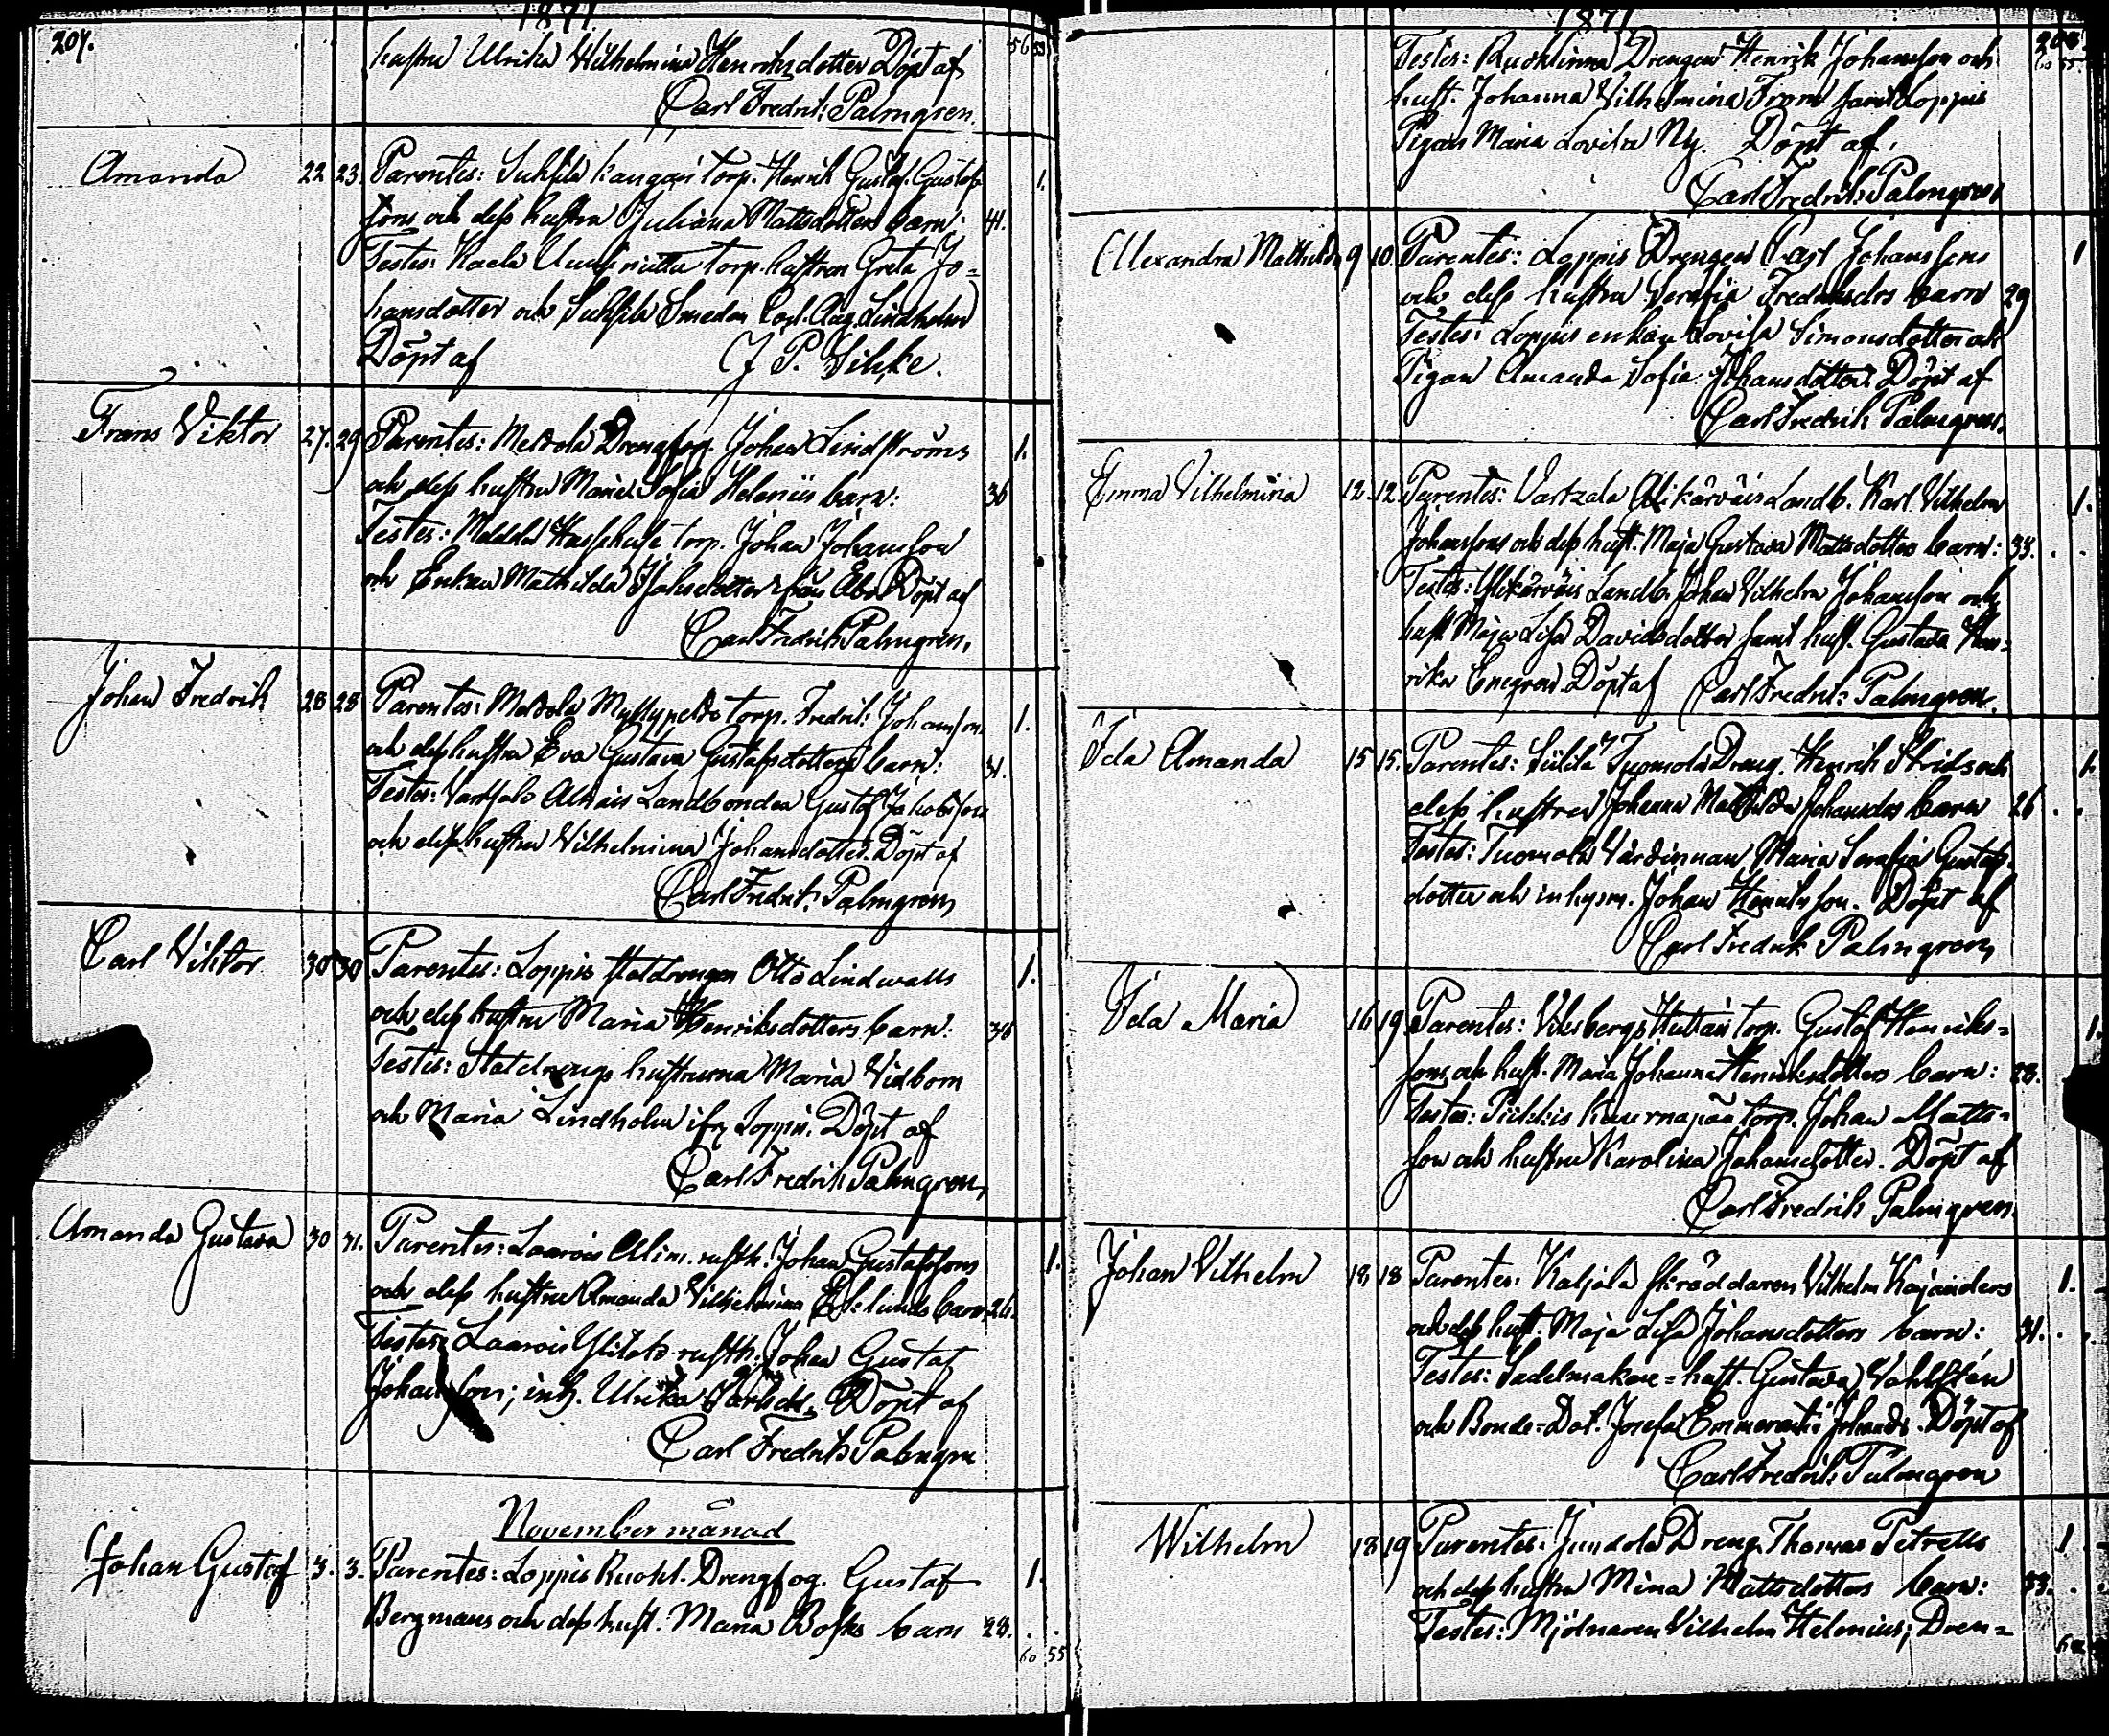 1871.
207.
hustru Ulrika Wilhelmina Henriksdotter Döpt af 56 53
Carl Fredrik Palmgren.
Amanda 22 23. Parentes: torp. Henrik Gustaf Gustafs 1.
sons och dess hustru Juliana Mattsdotters barn: 41.
Testes: Kaela torp. hustrun Greta Jo=
hansdotter och Smeden Carl Aug. Lindholm
Döpt af J. P. Sihke.
Frans Viktor 27. 29 Parentes: Meldola Drengfog. Johan Lindströms 1.
och dess hustru Maria Sofia Helenii barn: 36
Testes: torp. Johan Johansson
och Enkan Mathilda från Åbo Döpt af
Carl Fredrik Palmgren.
Johan Fredrik 28 28 Parentes: Meldola torp. Fredrik Johansson 1.
och dess hustru Eva Gustava Gustafsdotters barn: 31.
Testes: Landbonden Gustaf Jakobsson
och dess hustru Vilhelmina Johansdotter. Döpt af
Carl Fredrik Palmgren
Carl Viktor 30 30 Parentes: Loppis Statdrengen Otto Lindwalls 1.
och dess hustru Maria Henriksdotters barn: 38
Testes: Statdrengs hustrurna Maria Vidbom
och Maria Lindholm ifr. Loppis. Döpt af
Carl Fredrik Palmgren,
Amanda Gustava 30 31. Parentes: Laarois Alim. rusth. Johan Gustafssons 1.
och dess hustru Amanda Vilhelmina Eklunds barn 26.
Testes: Laarois Ylitalo rusth. Johan Gustaf
Johansson; inh. Ulrika Döpt af
Carl Fredrik Palmgren
November månad
Johan Gustaf 3. 3. Parentes: Loppis Ruohl. Drengfog. Gustaf 1.
Bergmans och dess hust. Maria barn 23.
60 55
1871
208
Testes: Ruohlinna Drengen Henrik Johansson och 60 55
hust. Johanna Vilhelmina From samt Loppis
Pigan Maria Lovisa Ny. Döpt af,
Carl Fredrik Palmgren
Alexandra Mathilda 9 10 Parentes: Loppis Drengen Carl Johanssons 1
och dess hustru Serafia Fredriksdrs barn 29
Testes: Loppis enkan Lovisa Simonsdotter och
Pigan Amanda Sofia Johansdotter. Döpt af
Carl Fredrik Palmgren.
Emma Vilhelmina 12. 12. Parentes: Vartzala Landb. Karl Vilhelm 1.
Johanssons och dess hust. Maja Gustava Mattsdotters barn: 33.
Testes: Landb. Johan Vilhelm Johansson och
hust. Maja Lisa Davidsdotter samt hust. Gustava Hen=
rika Enegren Döpt af Carl Fredrik Palmgren.
Ida Amanda 15 15. Parentes: Tuomola Dreng. Henrik Strids och 1.
dess hustru Johanna Mathilda Johansdrs barn 26
Testes: Tuomola Värdinnan Maria Serafia Gustafs
dotter och inhysm. Johan Henriksson. Döpt af
Carl Fredrik Palmgren
Ida Maria 16 19 Parentes: torp. Gustaf Henriks= 1.
sons och hust. Maria Johanna Henriksdotters barn: 28.
Testes: Piikkis torp. Johan Matts=
son och hustru Karolina Johansdotter. Döpt af
Carl Fredrik Palmgren.
Johan Vilhelm 18, 18 Parentes: Katjala skräddaren Vilhelm Kajanders 1.
och dess hust. Maja Lisa Johansdotters barn: 31.
Testes: Sadelmakare=hust. Gustava Vahlstén
och Bonde-Dot. Josefa Emerentia Johansdr. Döpt af
Carl Fredrik Palmgren
Wilhelm 18 19 Parentes: Jundola Dreng. Thomas Petrells 1
och dess hustru Mina Mattsdotters barn: 33.
Testes: Mjölnaren Vilhelm Helenius; Dren=